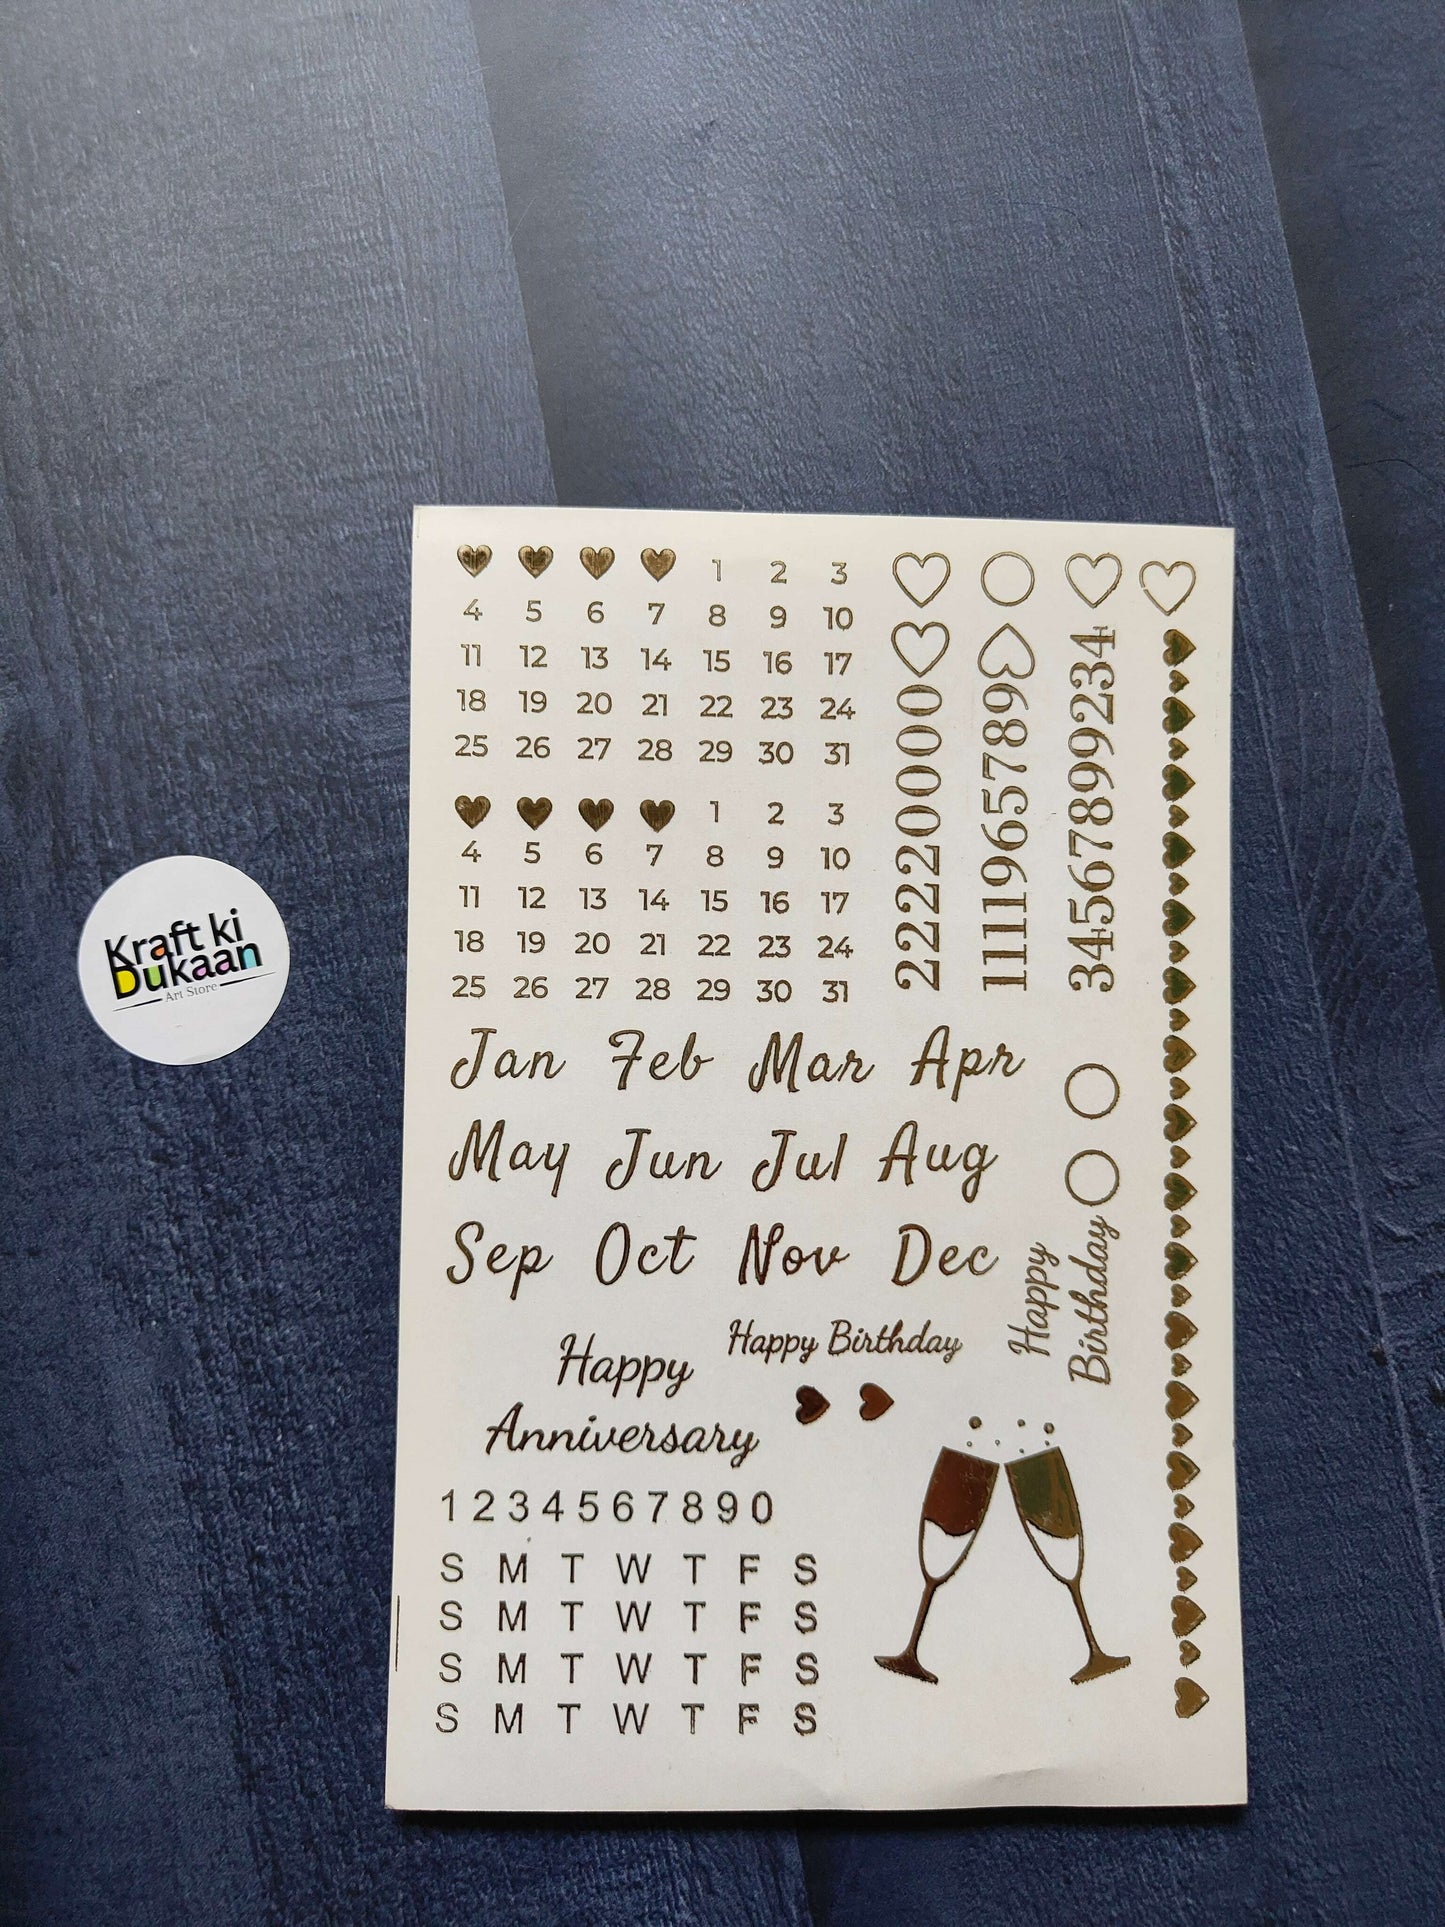 Kraft ki
Dukaan
Art Store
1 2 3
4 5 6 7 8 9 10
11 12 13 14 15 16 17
18 19 20 21 22 23 24
25 26 27 28 29 30 31
1 2 3
4 5 6 7 8 9 10
11 12 13 14 15 16 17
18 19 20 21 22 23 24
25 26 27 28 29 30 31
222200000
1111965789
34567899234
Jan Feb Mar Apr
May Jun Jul Aug
Sep Oct Nov Dec
Happy
Birthday
Happy Birthday
Happy
Anniversary
1 2 3 4 5 6 7 8 9 0
S M T W T F S
S M T W T F S
S M T W T F S
S M T W T F S